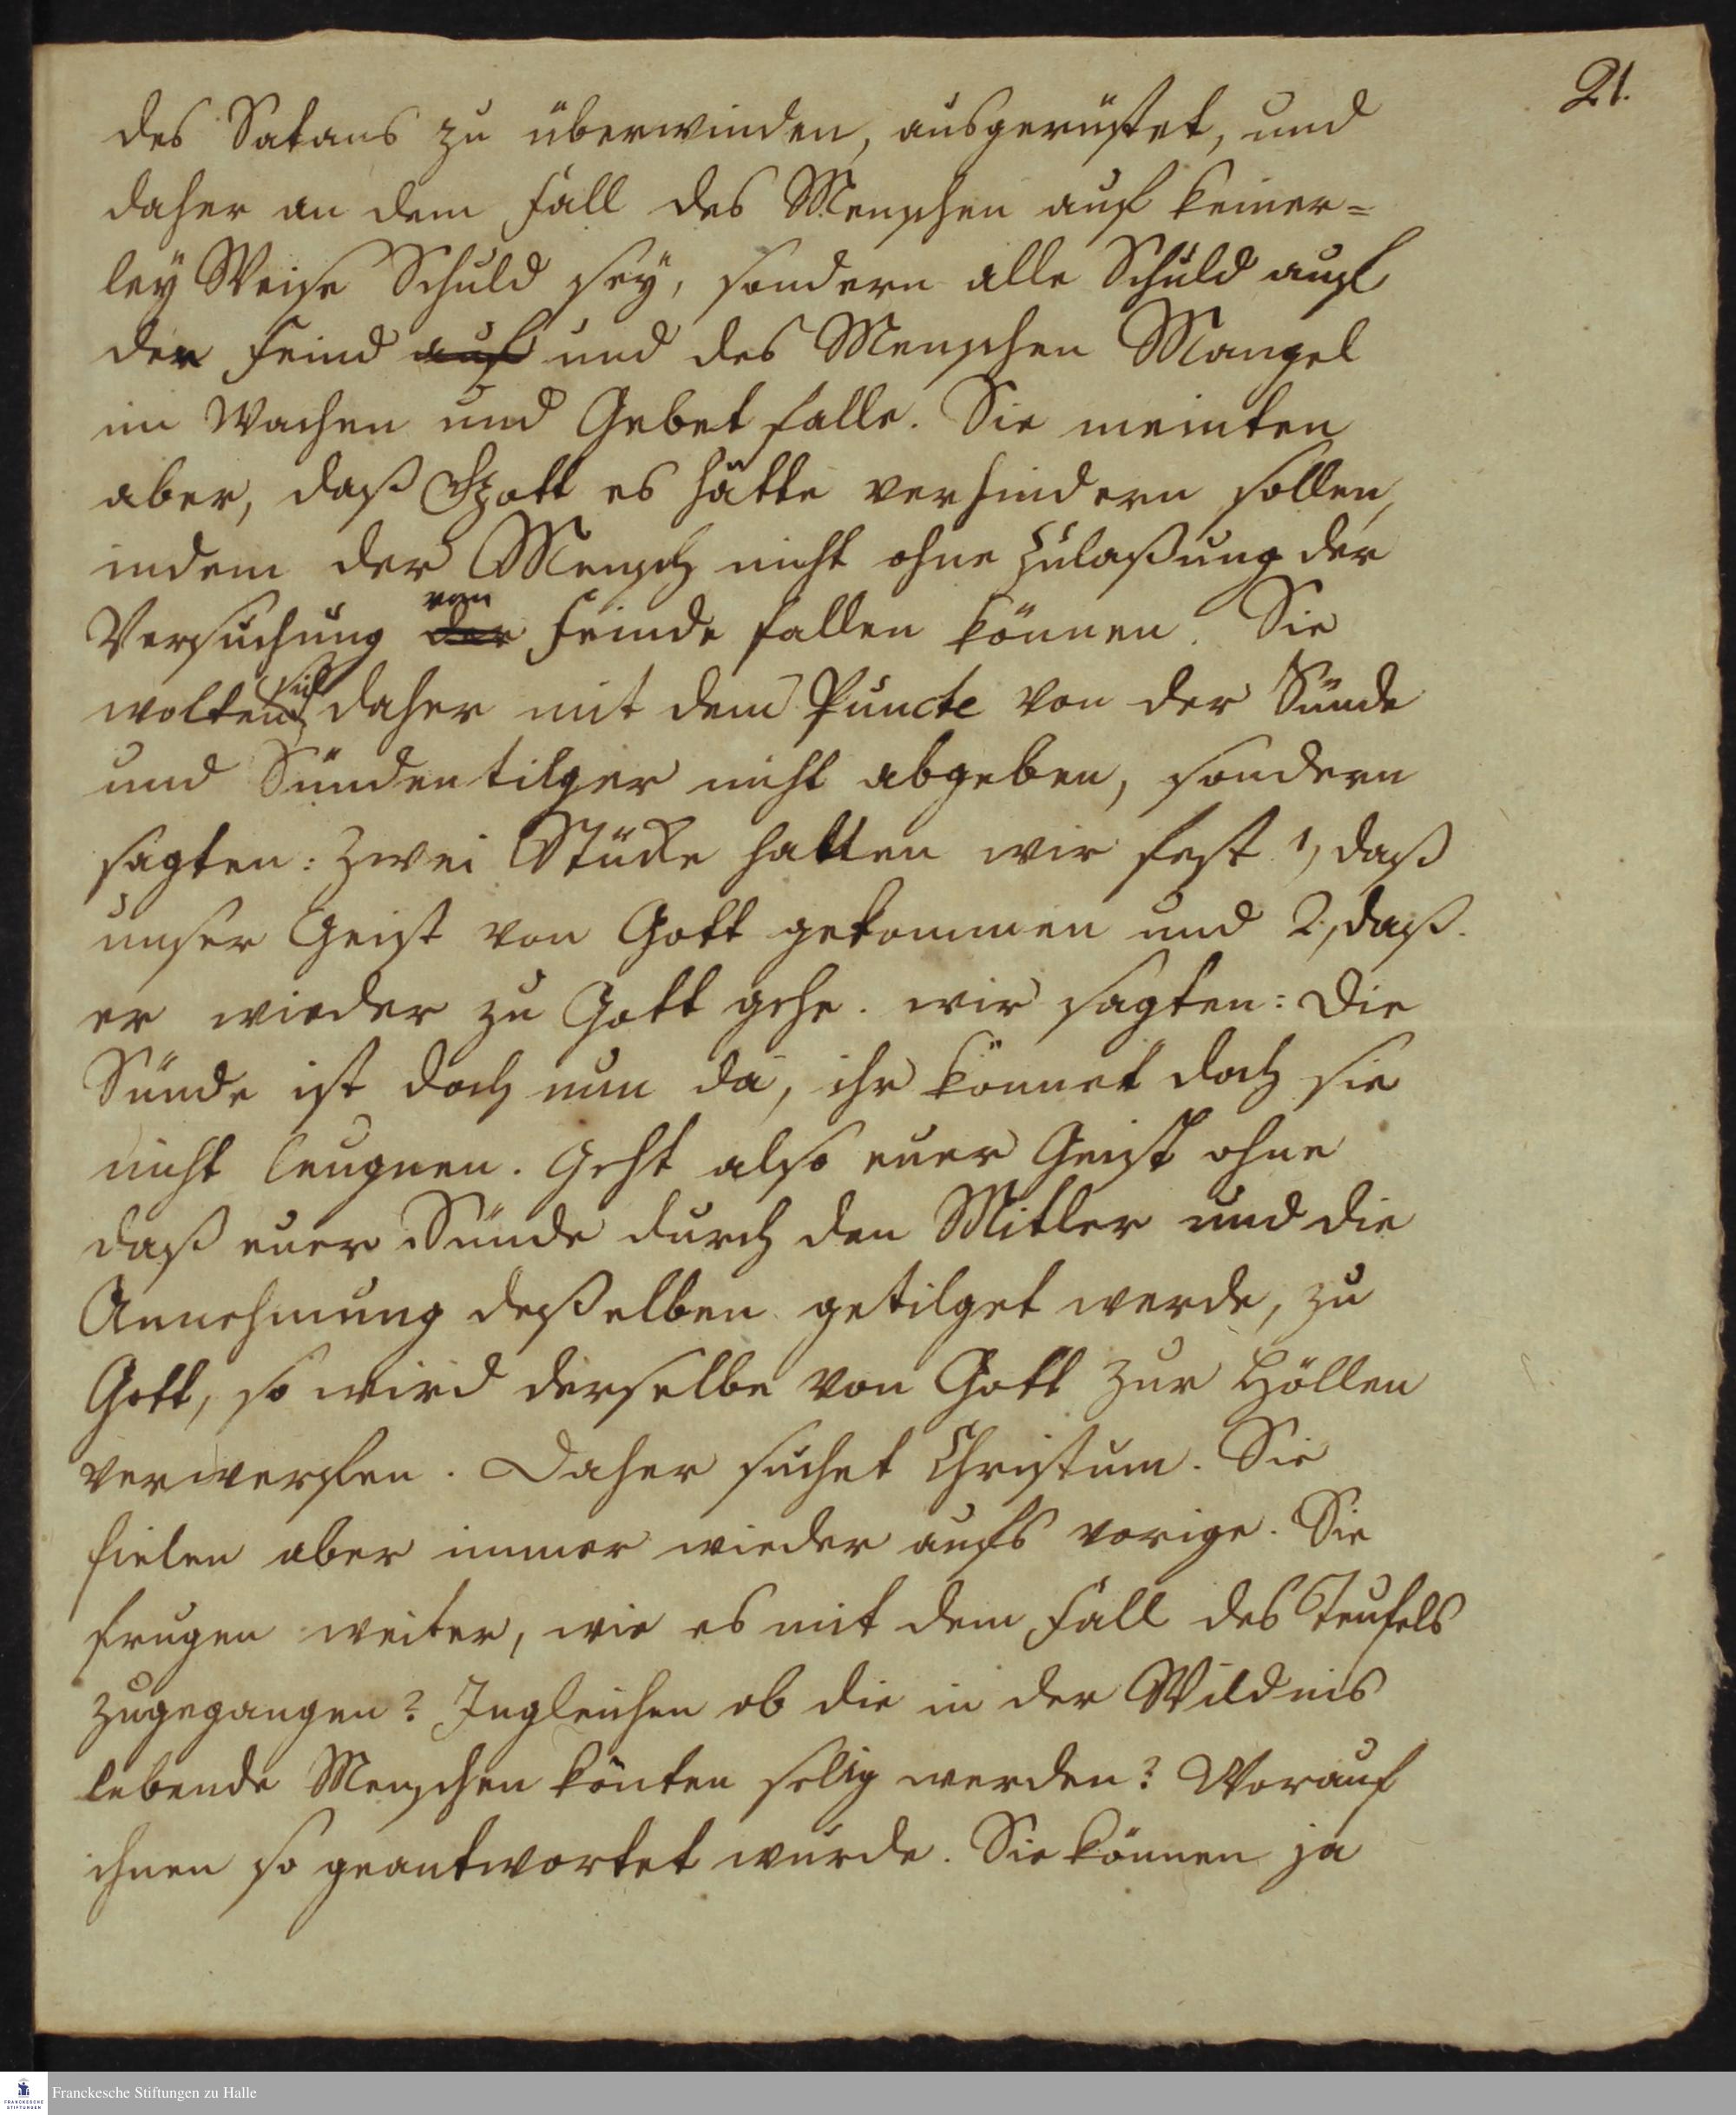 21.
des Satans zu überwinden, ausgerüstet, und
daher an dem Fall des Menschen auf keiner=
ley Weise Schuld sey, sondern alle Schuld auf
den Feind auf und des Menschen Mangel
im Wachen und Gebet falle. Sie meinten
aber, daß Gott es hätte verhindern sollen,
indem der Mensch nicht ohne Zulaßung der
Versuchung der vom Feinde fallen können. Sie
wolten sich daher mit dem Puncte von der Sünde
und Sündentilger nicht abgeben, sondern
sagten: Zwei Stücke halten wir fest 1, daß
unser Geist von Gott gekommen und 2, daß
er wieder zu Gott gehe. wir sagten: Die
Sünde ist doch nun da, ihr könnet doch sie
nicht leugnen. Geht also euer Geist ohne
daß euer Sünde durch den Mitler und die
Annehmung deßelben getilget werde, zu
Gott, so wird derselbe von Gott zur Höllen
verwerffen. Daher suchet Christum. Sie
fielen aber immer wieder aufs vorige. Sie
frugen weiter, wie es mit dem Fall des Teufels
zugegangen? Ingleichen ob die in der Wildnis
lebende Menschen könten selig werden? Worauf
ihnen so geantwortet wurde. Sie können ja
Franckesche Stiftungen zu Halle
FRANCKESCHE
STIFTUNGEN